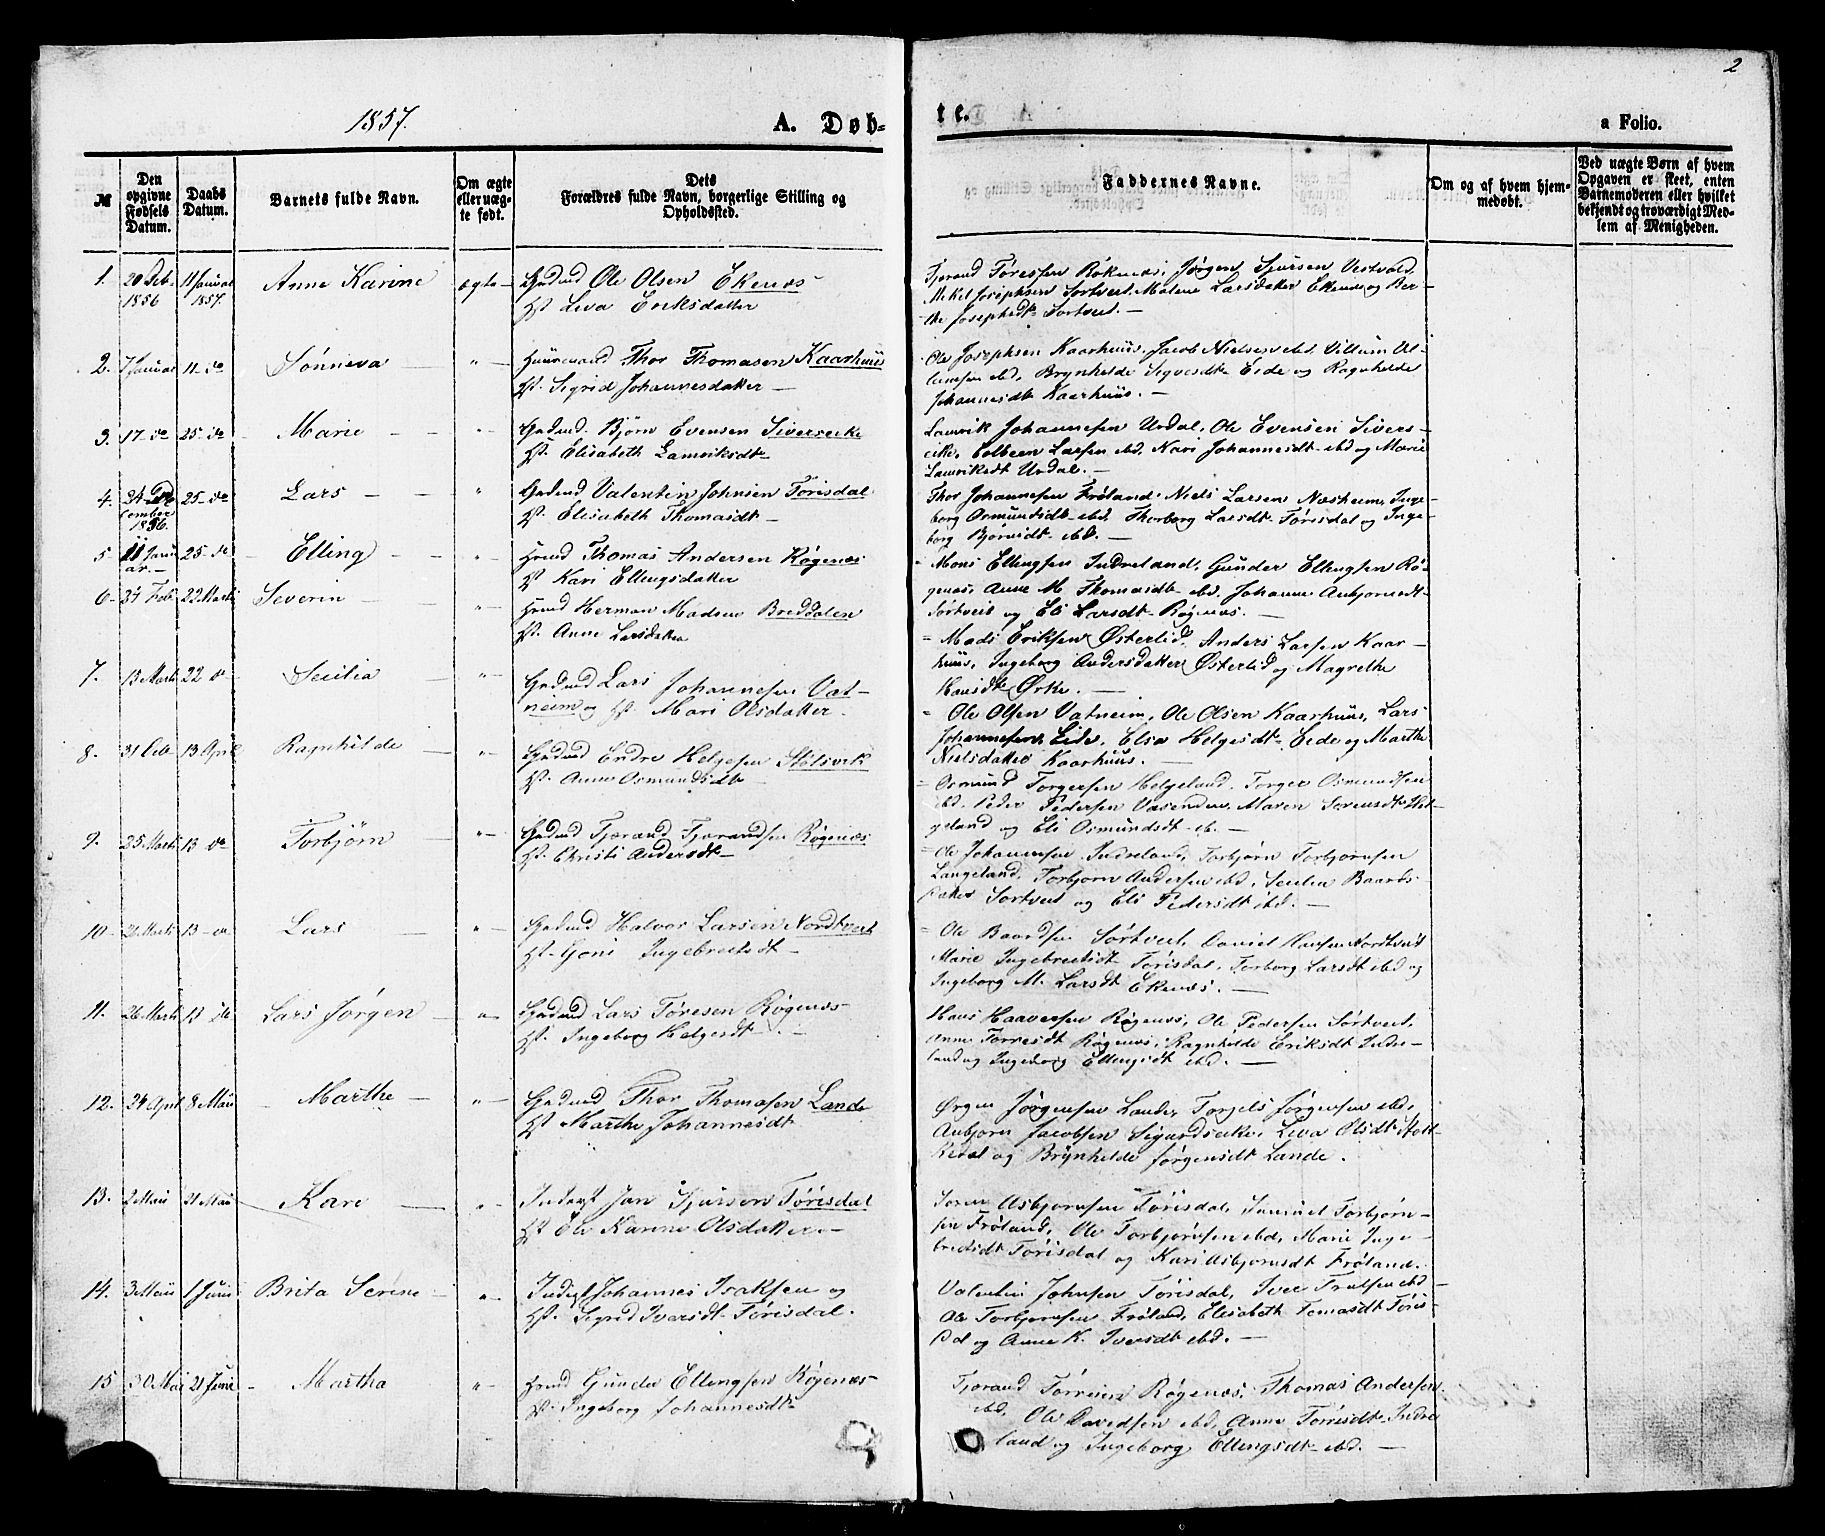 2
1857.
A. Døb-
te.
a Folio.
№
Den opgivne Fødsels Datum.
Daabs Datum.
Barnets fulde Navn.
Om ægte eller uægte født.
Dets Forældres fulde Navn, borgerlige Stilling og Opholdssted.
Faddernes Navne.
Om og af hvem hjemmedøbt.
Ved uægte Børn af hvem Opgaven er skeet, enten Barnemoderen eller hvilket bekjendt og troværdigt Medlem af Menigheden.
1. 1856 11 Januar 1857. Anne Karine ægte Ole Olsen Ekenæs
Eriksdatter
Tjerand Røkenæs, Jørgen Sjursen
Mikel Josephsen Sortveit, Malene Larsdatter Ekenæs og Ber-
the Josephsdt Sortveit. —
2. 7 Januar 11 do Sønneva " Thor Thomasen Kaarhuus
Sigrid Johannesdatter
Ole Josephsen Kaarhuus, Jacob Nielsen ibd, Villum Vil-
lumsen ibd, Brynhilde Eide og Ragnhilde
Johannesdt Kaarhuus. —
3. 17 do 25 do Marie " Bjørn Evensen
Elisabeth Lamriksdt
Lamrik Johannesen Urdal, Ole Evensen
Larsen ibd, Kari Johannesdt ibd og Marie
Lamriksdt Urdal. —
4. 24 De-
cember
1856. 25 do Lars " Valentin Johnsen Tørisdal
Elisabeth Thomasdt
Thor Johannesen Frøland, Niels Larsen Næsheim, Inge-
borg Osmundsdt ibd, Thorborg Larsdt Tørisdal og Inge-
borg ibd. —
5. 11 Janu-
ar. 25 do Elling " Thomas Andersen Røgenæs
Kari Ellingsdatter
Mons Ellingsen Indreland, Gunder Ellingsen Rø-
genæs, Anne M. Thomasdt ibd, Johanne
Sørtveit og Eli Larsdt Røgenæs. —
6. Feb 22 Marti Severin " Herman Madsen Breddalen
Anne Larsdatter
Mads Eriksen Østerlid, Anders Larsen Kaar-
huus, Ingeborg Andersdatter Østerlid og Magrethe
Hansdt —
7. 13 Marti 22 do Secilia " Lars Johannesen Vat-
neim og Mari Olsdatter.
Ole Olsen Vatneim, Ole Olsen Kaarhuus, Lars
Johannesen Eide, Elsa Helgesdt Eide og Marthe
Nielsdatter Kaarhuus. —
8. 13 April Ragnhilde " Endre Helgesen
Anne Osmundsdt
Osmund Torgersen Helgeland, Torger Osmundsen
ibd, Peder Pedersen Vasenden, Maren Sorensdt Hel-
geland og Eli Osmundsdt ib. —
9. 25 Marti 13 do Torbjørn " Tjerand Tjerandsen Røgenæs
Christi Andersdt
Ole Johannesen Indreland, Torbjørn Torbjørnsen
Langeland, Torbjørn Andersen ibd, Secilia Baards-
datter Sørtveit og Eli Pedersdt ibd. —
10. Marti 13 do Lars " Halvor Larsen Nordtveit
Ingebretsdt
Ole Baardsen Sørtveit, Daniel Hansen Nordtveit
Marie Ingebretsdt Tørisdal, Torborg Larsdt ibd og
Ingeborg M. Larsdt Ekenæs. —
11. 26 Marti 13 do Lars Jørgen " Lars Tøresen Røgenæs
Ingeborg Helgesdt
Hans Haaversen Røgenæs, Ole Pedersen Sørtveit,
Anne Torresdt Røgenæs, Ragnhilde Eriksdt Indre-
land og Ingeborg Ellingsdt ibd. —
12. 24 April 8 Maii Marthe " Thor Thomasen Lande
Marthe Johannesdt
Ørgen Jørgensen Lande, Torgels Jørgensen ibd,
Jacobsen Olsdt
og Brynhilde Jørgensdt Lande.
13. 2 Maii 21 Maii Kari " Jan Sjursen Tørisdal
Karine Olsdatter
Soren Asbjørnsen Tørisdal, Samuel Torbjørn-
sen Frøland, Ole Torbjørnsen ibd, Marie Inge-
bretsdt Tørisdal og Kari Asbjørnsdt Frøland.
14. 3 Maii 1 Juni Brita Serine " Johannes Isaksen og
Sigrid Iversdt Tørisdal.
Valentin Johnsen Tørisdal, Iver Trulsen ibd
Ole Torbjørnsen Frøland, Elisabeth Tomasdt Tøris-
dal og Anne K. Iversdt ibd. —
15 30 Mai 21 Juni Martha " Gunder Ellingsen Røgenæs
Ingeborg Johannesdt
Tjerand Røgenæs, Thomas Andersen
ibd, Ole Davidsen ibd, Anne Torrisdt Indre
land og Ingeborg Ellingsdt ibd. —